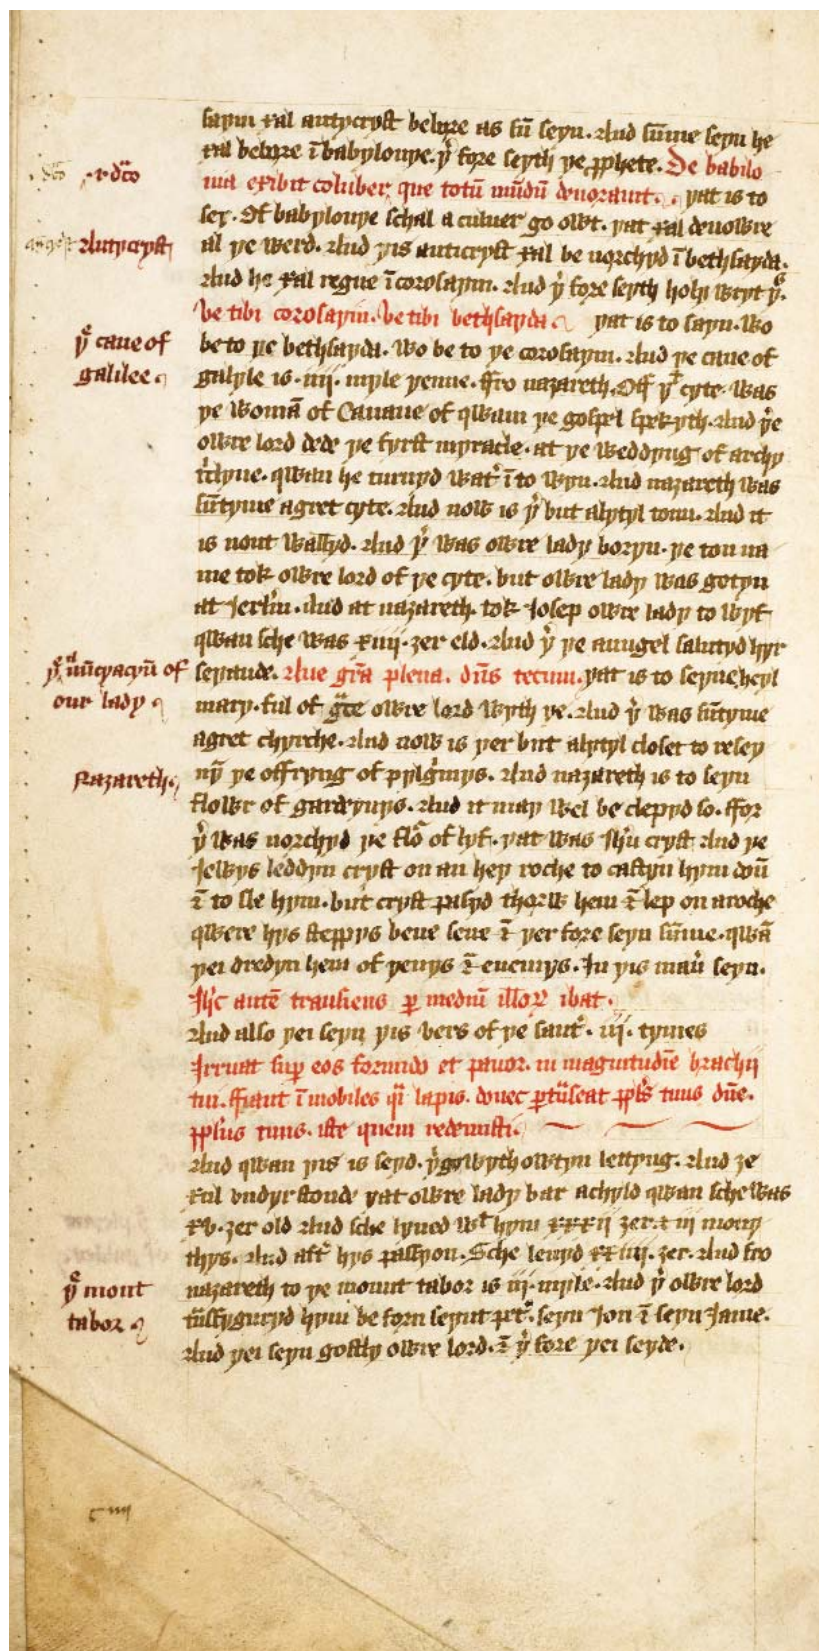 saym xal antycryst be bore as sū seyn. And sūme seyn he
xal be bore ī babylonye. yͬ fore seyth ye pphete. De babilo
nia exibit coluber que totū mūdū deuorauit. yat is to
sey. Of babylonye schal a culuer go owt. yat xal deuowre
al ye werd. And yis anticryst xal be norchyd ī bethsayda.
And he xal regne ī corosaym. And yͬ fore seyth holy wryt yͧs.
Ve tibi corosaym. Ve tibi bethsayda yat is to sayn. Wo
be to ye bethsayda. Wo be to ye corosaym. And ye cane of
galyle is .iiij. myle yenne. ffro nazareth. Off yͭ cyte. Was
ye womā of Canane of qwam ye gospel spekyth. And yͤre
owre lord dede ye fyrst myracle. at ye weddyng of archy
tͥclyne. qwan he turnyd watͬ ī to wyn. And nazareth was
sūtyme agret cyte. And now is yͬ but alytyl toun. And it
is nout wallyd. And yͬ was owre lady boryn. ye ton na
me tok owre lord of ye cyte. but owre lady was gotyn
at Jerlm̄. And at nazareth. tok Josep owre lady to wyf
qwan sche was xiiij. zer eld. And yͬ ye aungel salutyd hyr
seyande. Aue grā plena. dn̄s tecum. yat is to seyne heyl
mary. ful of gͣce owre lord wyth ye. And yͬ was sūtyme
agret chyrche. And now is yer but alytyl closet to resey
uȳ ye offryng of pylgͥmys. And nazareth is to seyn
flowr of gardynys. And it may wel be clepyd so. ffor
yͬ was norchyd ye floͬ of lyf. yat was Jhu cryst And ye
Jewys leddyn cryst on an hey roche to castyn hym doū
⁊ to sle hym. but cryst passyd thorw hem ⁊ lep on a roche
qwere hys steppys bene sene ⁊ yer fore seyn sūme. qwā
yei dredyn hem of yeuys ⁊ enemys. In yis manͬ seyn.
Jhc̄ autē transiens p mediū illoꝝ ibat.
And also yei seyn yis vers of ye sautͬ. iij. tymes
Irruat sup eos formido et pauor. in magnitudīe brachij
tui. ffiant ī mobiles qͣi lapis. donec ptͣnseat ppls tuus dn̄e.
pplus tuus. iste quem redemisti.
And qwan yis is seyd. yͬ go wyth owtyn lettyng. And ze
xul vndyrstonde yat owre lady bar achyld qwan sche was
xv. zer old And sche lyued wͭ hym xxxij zer. ⁊ iij mony
thys. And aftͬ hys passyon. Sche leuyd xxiiij. zer. And fro
nazareth to ye mount tabor is iij. myle. And yͬ owre lord
tͣnsfyguryd hym be forn seynt petͬ. seyn Jon ⁊ seyn Jame.
And yei seyn gostly owre lord. ⁊ yͬ fore yei seyde.
Antycryst
yͤ cane of
galilee
yͤ anūcyacyū of
our lady
Nazareth.
yͤ mont
tabor
c iiij